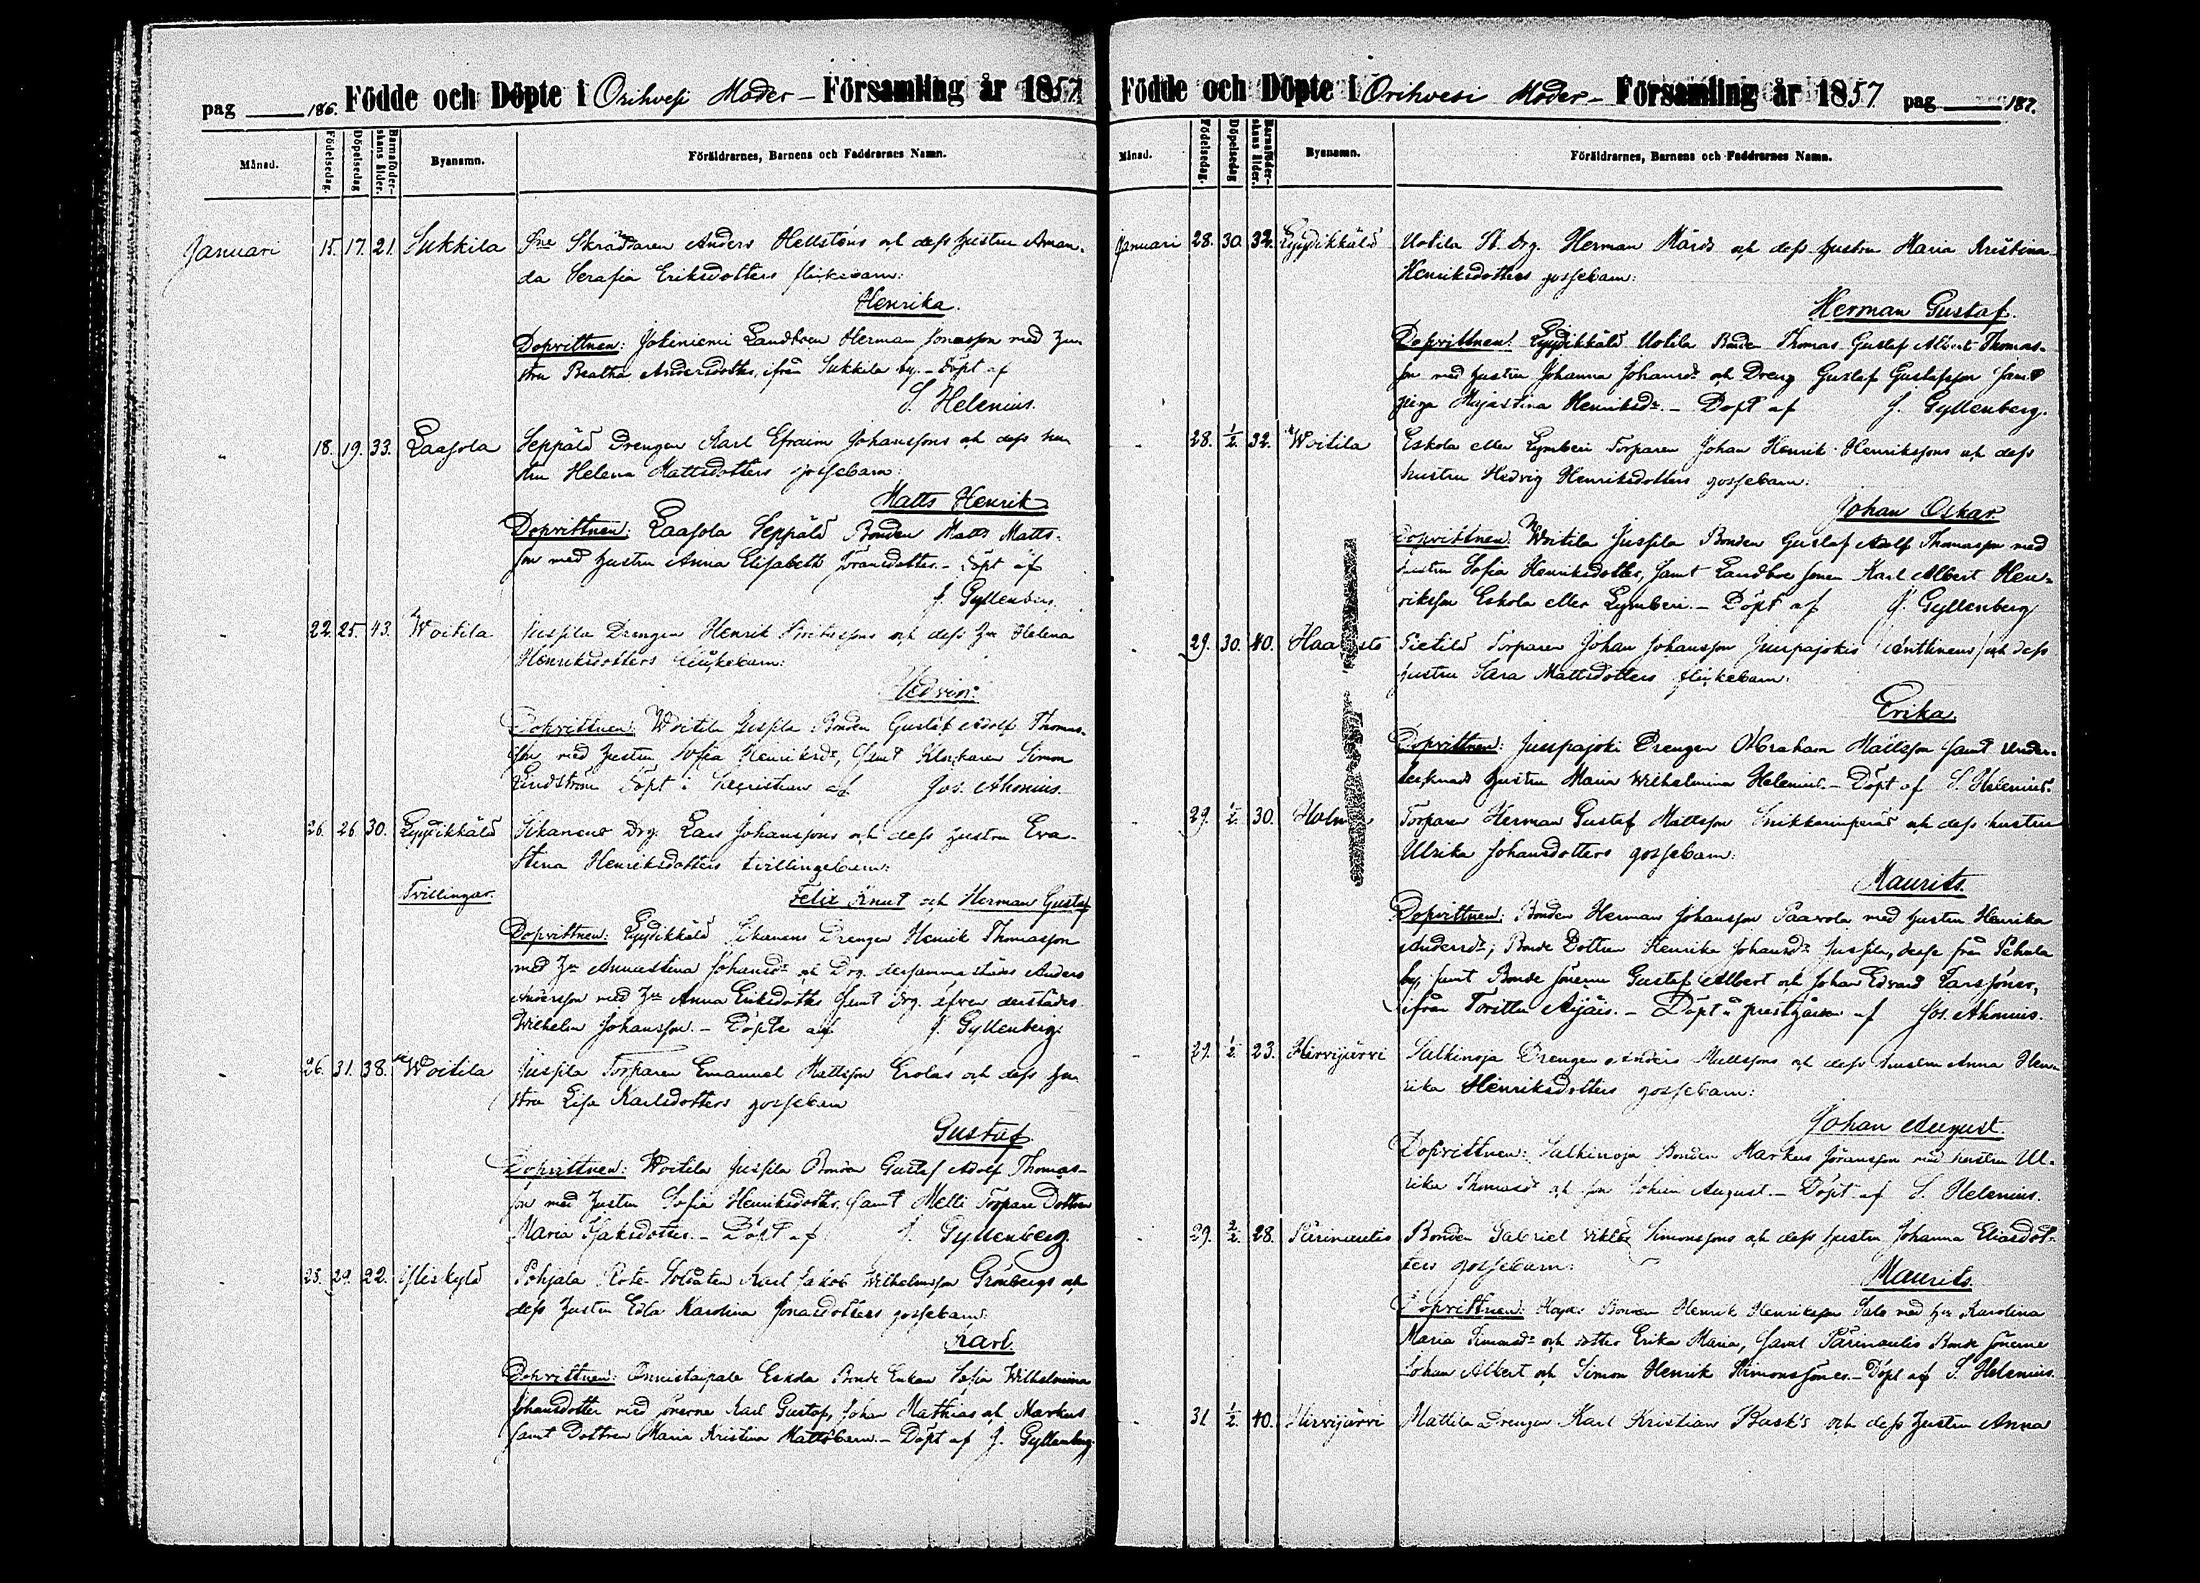 pag 186. Födde och Döpte i Orihvesi Moder - Församling år 1857
Månad. Födelsedag. Döpelsedag Barnaföderskans ålder. Byanamn. Föräldrarnes, Barnens och Faddrarnes Namn.
Januari 15. 17. 21. Sukkila Skräddaren Anders Hellstöns och dess hustru Aman-
da Serafia Eriksdotters flickebarn:
Henrika.
Dopvittnen: Jokiniemi Landboen Herman Jonasson med hu-
stru Beatha Andersdotter, ifrån Sukkila by. - Döpt af
S. Helenius.
" 18. 19. 33. Laasola Seppälä Drengen Karl Efraim Johanssons och dess hu-
stru Helena Mattsdotters gossebarn:
Matts Henrik
Dopvittnen: Laasola Seppälä Bonden Matts Matts-
son med hustru Anna Elisabeth Göransdotter. - Döpt af
J. Gyllenberg.
22. 25. 43. Woitila Jussila Drengen Henrik och dess hu Helena
Henriksdotters flickebarn:
Hedvig:
Dopvittnen: Woitila Jussila Bonden Gustaf Adolf Thomas-
son med hustru Sofia Henriksdr, samt Klockaren Simon
Lindström Döpt i Sacristian af Jos. Ahonius.
26. 26. 30. Lyydikkälä Sikanens Drg. Lars Johanssons och dess hustru Eva-
Stina Henriksdotters tvillingebarn:
Tvillingar. Felix Knut och Herman Gustaf
Dopvittnen: Lyydikkälä Sikanens Drengen Henrik Thomasson
med hu Annastina Johansdr och Drg. dersammastädes Anders
Andersson med hu Anna Eriksdotter samt Drg. äfven derstädes
Wilhelm Johansson. - Döpte af J. Gyllenberg.
26. 31. 38. Woitila Jussila Torparen Emanuel Mattsson Erolas och dess hu-
stru Lisa Karlsdotters gossebarn
Gustaf.
Dopvittnen: Woitila Jussila Bonden Gustaf Adolf Thomas-
son med hustru Sofia Henriksdotter, samt Melli Torpare Dottren
Maria Isaksdotter. - Döpt af J. Gyllenberg
28. 29. 22. Yliskylä Pohjala Rote Soldaten Karl Jakob Wilhelmsson Grönbergs och
dess hustru Edla Karolina Jonasdotters gossebarn:
Karl.
Dopvittnen: Onnistaipale Eskola Bonde Enkan Sofia Wilhelmina
Johansdotter med sönerne Karl Gustaf, Johan Mathias och Markus
samt Dottren Maria Kristina Mattsbarn. - Döpt af J. Gyllenberg
Födde och Döpte i Orihvesi Moder - Församling år 1857 pag 187.
Månad. Födelsedag. Döpelsedag Barnaföderskans ålder. Byanamn. Föräldrarnes, Barnens och Faddrarnes Namn.
Januari 28. 30. 32. Lyydikkälä Uotila St. drg. Herman Mårds och dess hustru Maria Kristina
Henriksdotters gossebarn:
Herman Gustaf.
Dopvittnen: Lyydikkälä Uotila Bonden Thomas Gustaf Albert Thomas-
son med hustru Johanna Johansdr och Dreng Gustaf Gustafsson samt
piga Majastina Henriksdr. - Döpt af J. Gyllenberg.
28. 1/2. 32. Woitila Eskola eller Lymberi Torparen Johan Henrik Henrikssons och dess
hustru Hedvig Henriksdotters gossebarn:
Johan Oskar.
Dopvittnen: Woitila Jussila Bonden Gustaf Adolf Thomasson med
hustru Sofia Henriksdotter, samt Landboe sonen Karl Albert Hen-
riksson Eskola eller Lymberi. - Döpt af J. Gyllenberg
29. 30. 40. Haa sto Pietilä Torparen Johan Johansson Juupajokis (Anttinens) och dess
hustru Sara Mattsdotters flickebarn.
Erika.
Dopvittnen: Juupajoki Drengen Abraham Mattsson samt under-
tecknads hustru Maria Wilhelmina Helenius. - Döpt af S. Helenius.
29. 1/2. 30. Holm Torparen Herman Gustaf Mattsson och dess hustru
Ulrika Johansdotters gossebarn:
Maurits.
Dopvittnen: Bonden Herman Johansson Paavola med hustru Henrika
Andersdr; Bonde Dottren Henrika Johansdr Jussila, desse från Pehula
by, samt Bonde sönerne Gustaf Albert och Johan Edvard Larssöner,
ifrån Torittu Äijäis. - Döpt i prestgården af Jos. Ahonius.
29. 1/2. 23. Hirvijärvi Salkinoja Drengen Anders Mattssons och dess hustru Anna Hen-
rika Henriksdotters gossebarn:
Johan August.
Dopvittnen: Salkinoja Bonden Markus Göransson med hustru Ul-
rika Thomasdr och son Johan August. - Döpt af S. Helenius.
29. 2/2. 28. Pärinautis Bonden Gabriel Viktor Simonssons och dess hustru Johanna Eliasdot-
ters gossebarn:
Maurits.
Dopvittnen: Bonden Henrik Henriksson Salo med hu Karolina
Maria Simonsdr och dotter Erika Maria, samt Pärinautis Bonde sönerne
Johan Albert och Simon Henrik Simonssöner. - Döpt af S. Helenius.
31 1/2. 40. Hirvijärvi Mattila Drengen Karl Kristian Bask's och dess hustru Anna